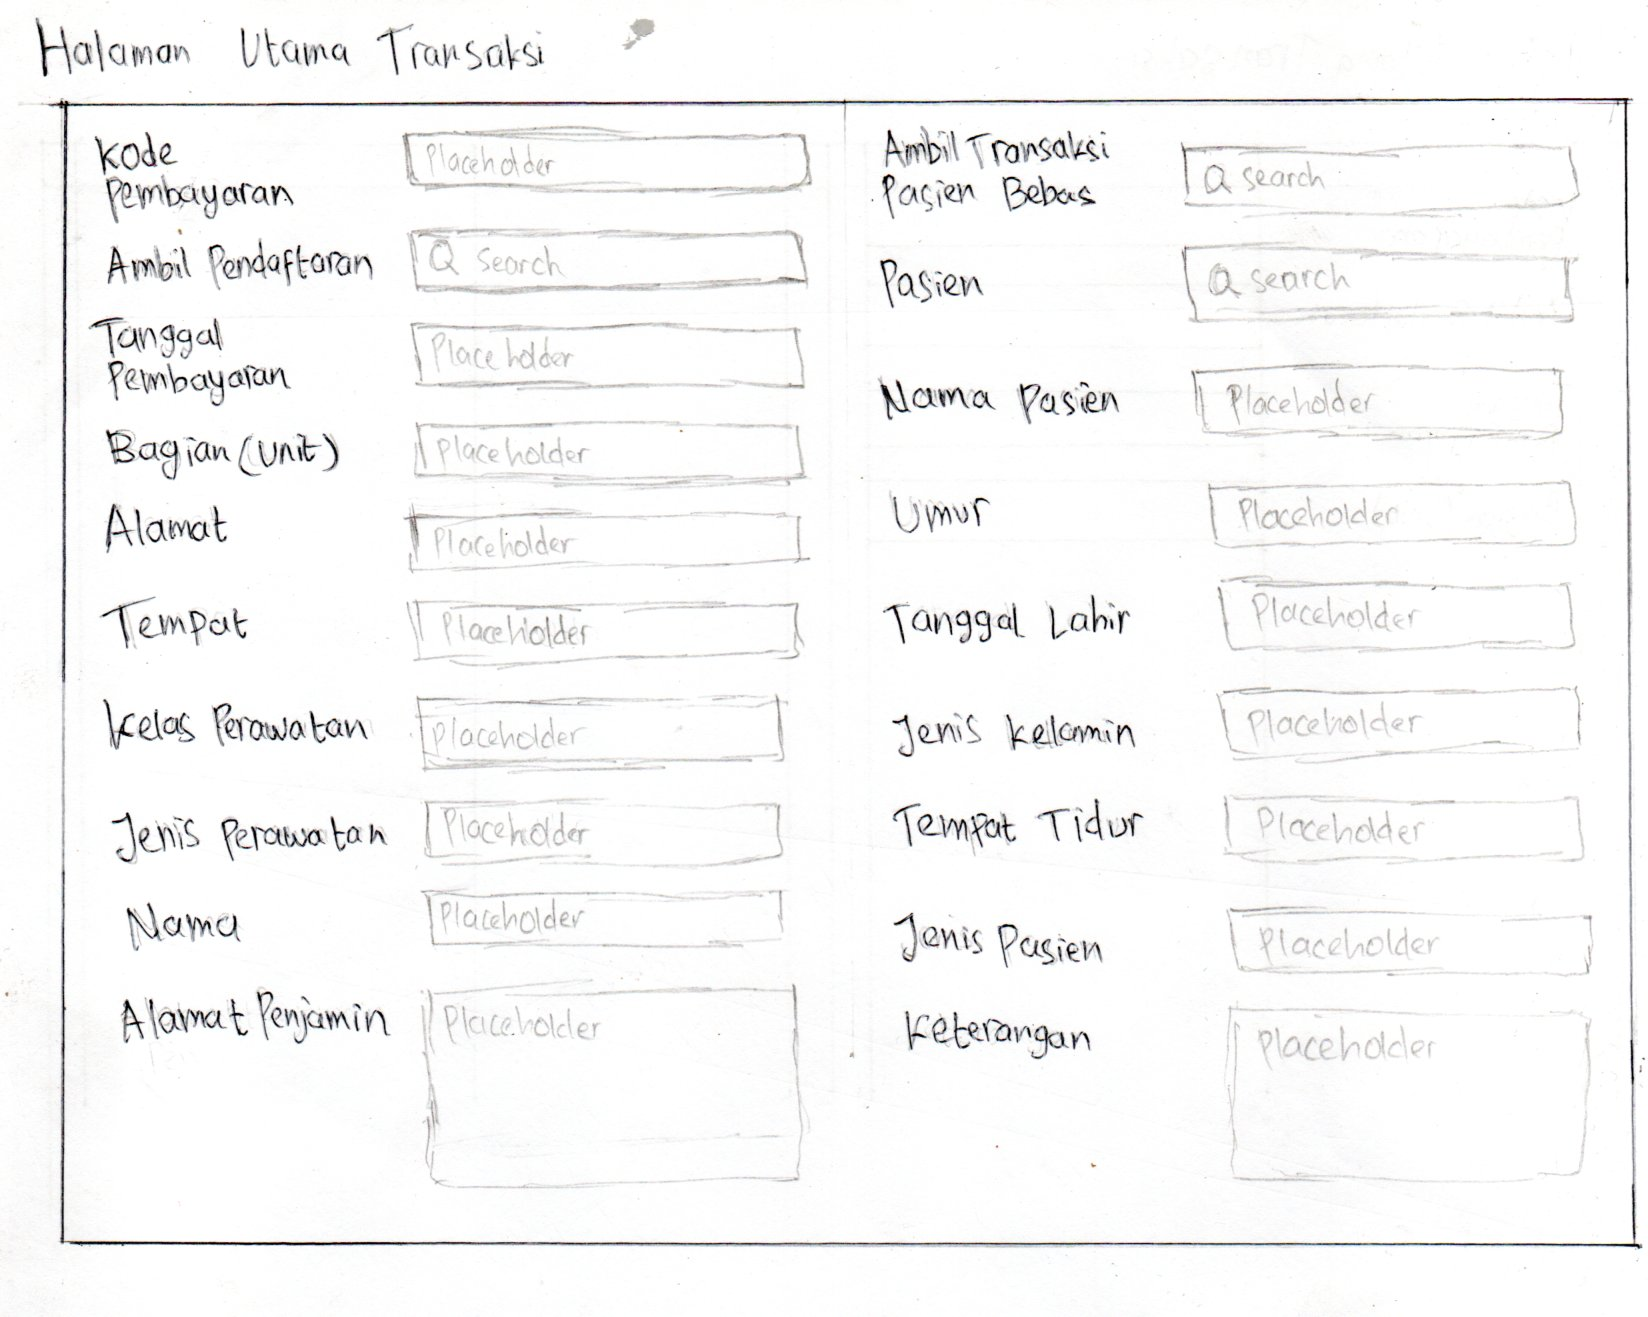 Halaman Utama Transaksi
Kode
Pembayaran
Placeholder
Ambil Pendaftaran
Q search
Tanggal
Pembayaran
Placeholder
Bagian (Unit)
Placeholder
Alamat
Placeholder
Tempat
Placeholder
Kelas Perawatan
Placeholder
Jenis Perawatan
Placeholder
Nama
Placeholder
Alamat Penjamin
Placeholder
Ambil Transaksi
Pasien Bebas
Q search
Pasien
Q search
Nama Pasien
Placeholder
Umur
Placeholder
Tanggal Lahir
Placeholder
Jenis Kelamin
Placeholder
Tempat Tidur
Placeholder
Jenis Pasien
Placeholder
Keterangan
Placeholder